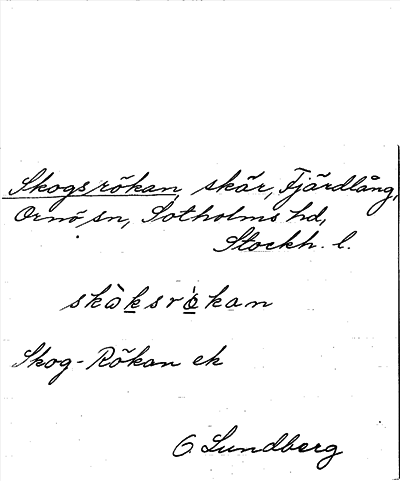 Skogsrökan, skär, Fjärdlång,
Ornö sn, Sotholms hd,
Stockh. l.
skὰksrὸkan
Skog-Rökan ek
O. Lundberg